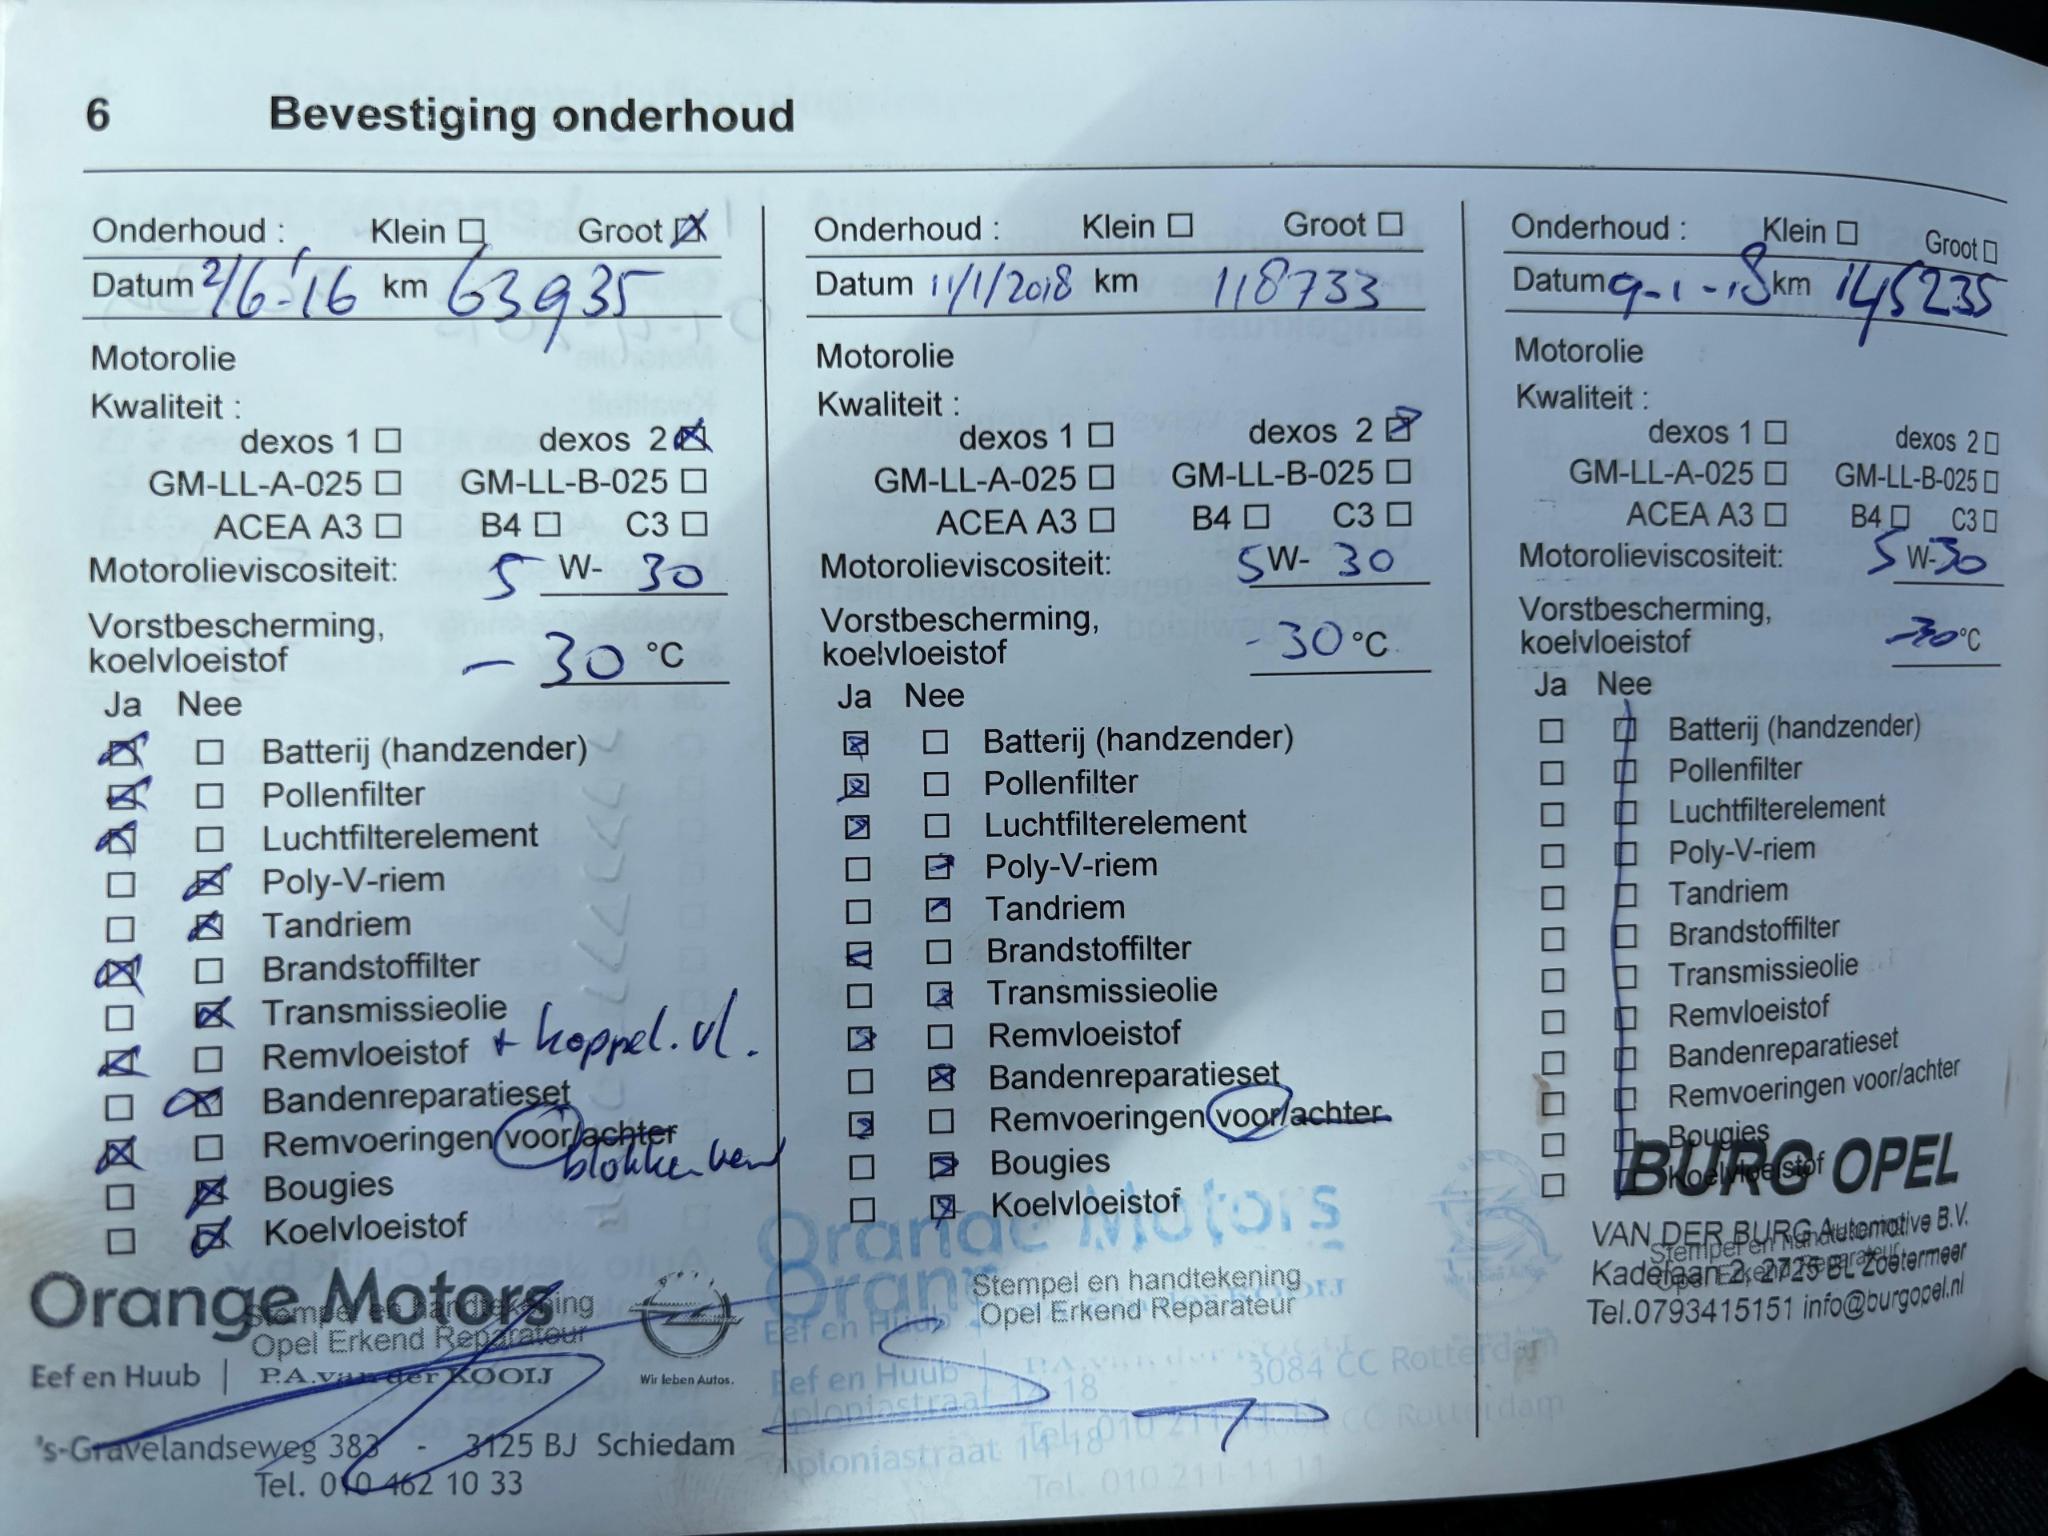 6 Bevestiging onderhoud
Onderhoud : Klein Groot
Datum 2/6-'16 km 63935
Motorolie
Kwaliteit :
dexos 1 dexos 2
GM-LL-A-025 GM-LL-B-025
ACEA A3 B4 C3
Motorolieviscositeit: 5 W- 30
Vorstbescherming,
koelvloeistof - 30 °C
Ja Nee
Batterij (handzender)
Pollenfilter
Luchtfilterelement
Poly-V-riem
Tandriem
Brandstoffilter
Transmissieolie
Remvloeistof + koppel. vl.
Bandenreparatieset
Remvoeringen voor/achter
blokken
Bougies
Koelvloeistof
Orange Motors
Stempel en handtekening
Opel Erkend Reparateur
Eef en Huub | P.A. van der KOOIJ
Wir leben Autos.
's-Gravelandseweg 383 - 3125 BJ Schiedam
Tel. 010 462 10 33
Onderhoud : Klein Groot
Datum 11/1/2018 km 118733
Motorolie
Kwaliteit :
dexos 1 dexos 2
GM-LL-A-025 GM-LL-B-025
ACEA A3 B4 C3
Motorolieviscositeit: 5 W- 30
Vorstbescherming,
koelvloeistof -30 °C
Ja Nee
Batterij (handzender)
Pollenfilter
Luchtfilterelement
Poly-V-riem
Tandriem
Brandstoffilter
Transmissieolie
Remvloeistof
Bandenreparatieset
Remvoeringen voor/achter
Bougies
Koelvloeistof
Orange Motors
Stempel en handtekening
Opel Erkend Reparateur
Eef en Huub
Eef en Huub | P.A. van der KOOIJ
3084 CC Rotterdam
Aploniastraat 14-18
Tel. 010 211 11 11
CC Rotterdam
Aploniastraat 14-18
Tel. 010 211 11 11
Onderhoud : Klein Groot
Datum 9-1-18 km 145235
Motorolie
Kwaliteit :
dexos 1 dexos 2
GM-LL-A-025 GM-LL-B-025
ACEA A3 B4 C3
Motorolieviscositeit: 5 W-30
Vorstbescherming,
koelvloeistof -30 °C
Ja Nee
Batterij (handzender)
Pollenfilter
Luchtfilterelement
Poly-V-riem
Tandriem
Brandstoffilter
Transmissieolie
Remvloeistof
Bandenreparatieset
Remvoeringen voor/achter
Bougies
Koelvloeistof
BURG OPEL
VAN DER BURG Automotive B.V.
Stempel en handtekening
Opel Erkend Reparateur
Kadelaan 2, 2725 BL Zoetermeer
Tel.0793415151 info@burgopel.nl